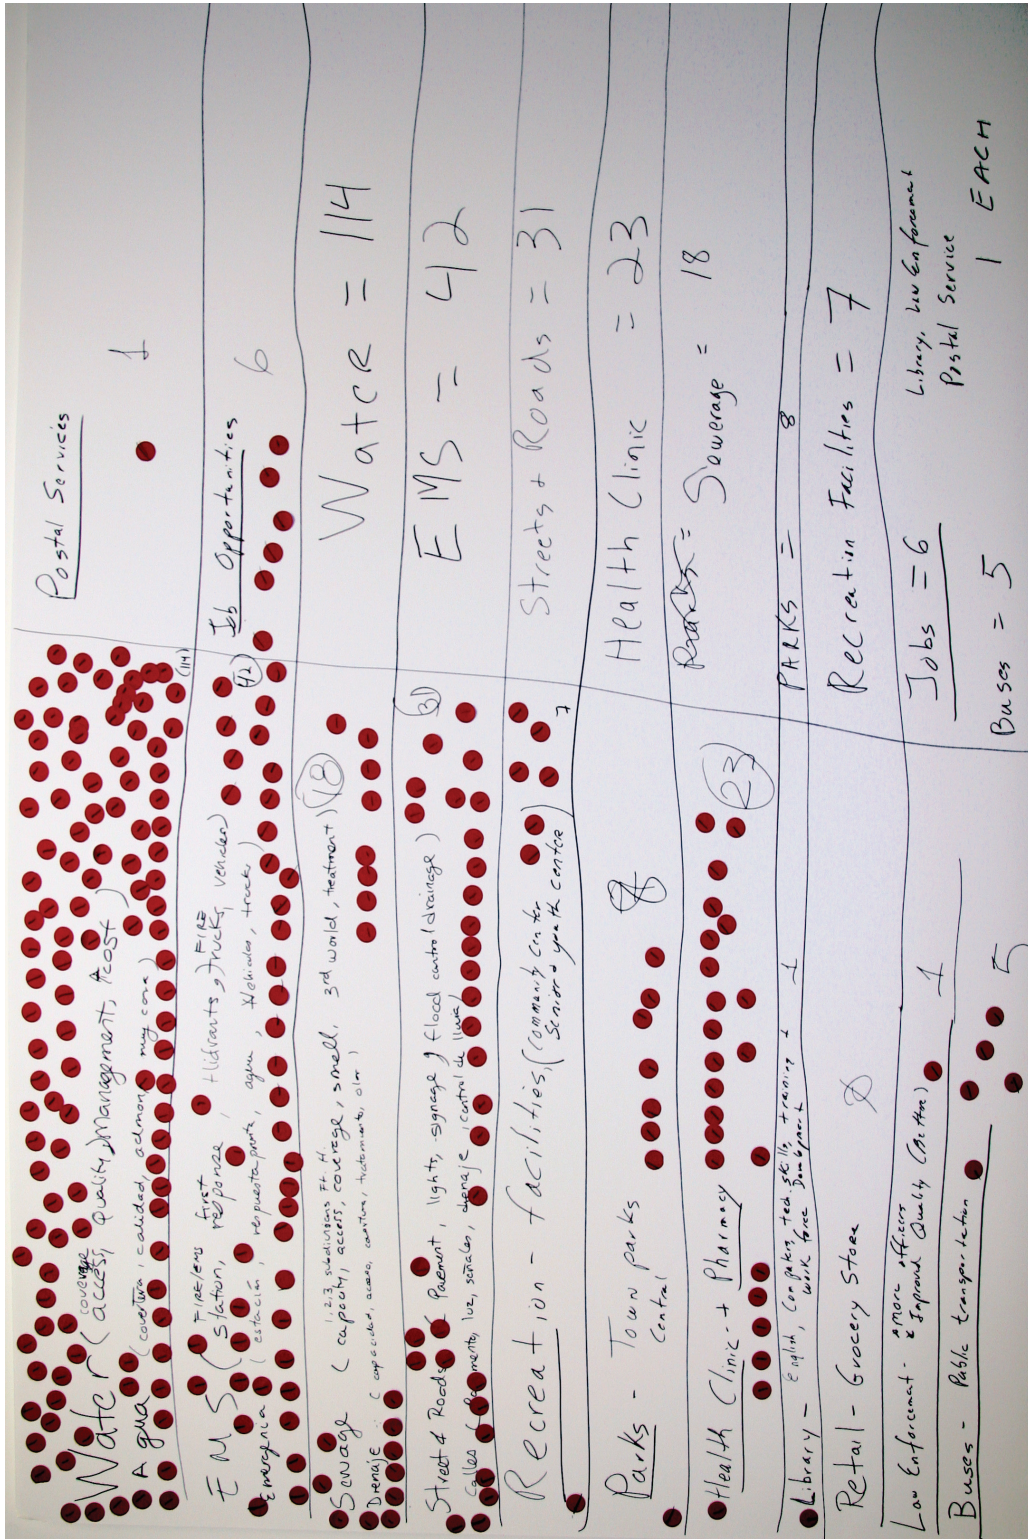 Water (access, coverage quality, management, cost)
Agua (covertera, calidad, admon, muy cara)
(114)
EMS (FIRE/EMS Station, first response, Hidrants, FIRE trucks, vehicles)
Emergencia (estación, respuesta pronta, agua, Vehiculos, trucks)
(42)
Sewage (1,2,3, subdivisions Ft. H. capacity, access, coverage, smell, 3rd world, treatment) (18)
Drenaje: (capacidad, acceso, covertura, tratamiento, olor)
Street & Roads (Pavement, lights, signage, flood control drainage) (31)
Calles (Pavimento, luz, señales, drenaje, control de lluvia)
Recreation - facilities, (community center Senior & youth center) 7
Parks - Town parks
Central
8
Health Clinic + Pharmacy (23)
Library - English, Computers, tech. skills, training +
work force Development 1
Retail - Grocery Store Ø
Law Enforcement - * more officers
* Improved Quality (better) 1
Buses - Public transportation 5
Postal Services
1
Job Opportunities
6
Water = 114
EMS = 42
Streets + Roads = 31
Health Clinic = 23
Sewerage = 18
PARKS = 8
Recreation Facilities = 7
Jobs = 6
Buses = 5
Library, Law Enforcement
Postal Service
1 EACH